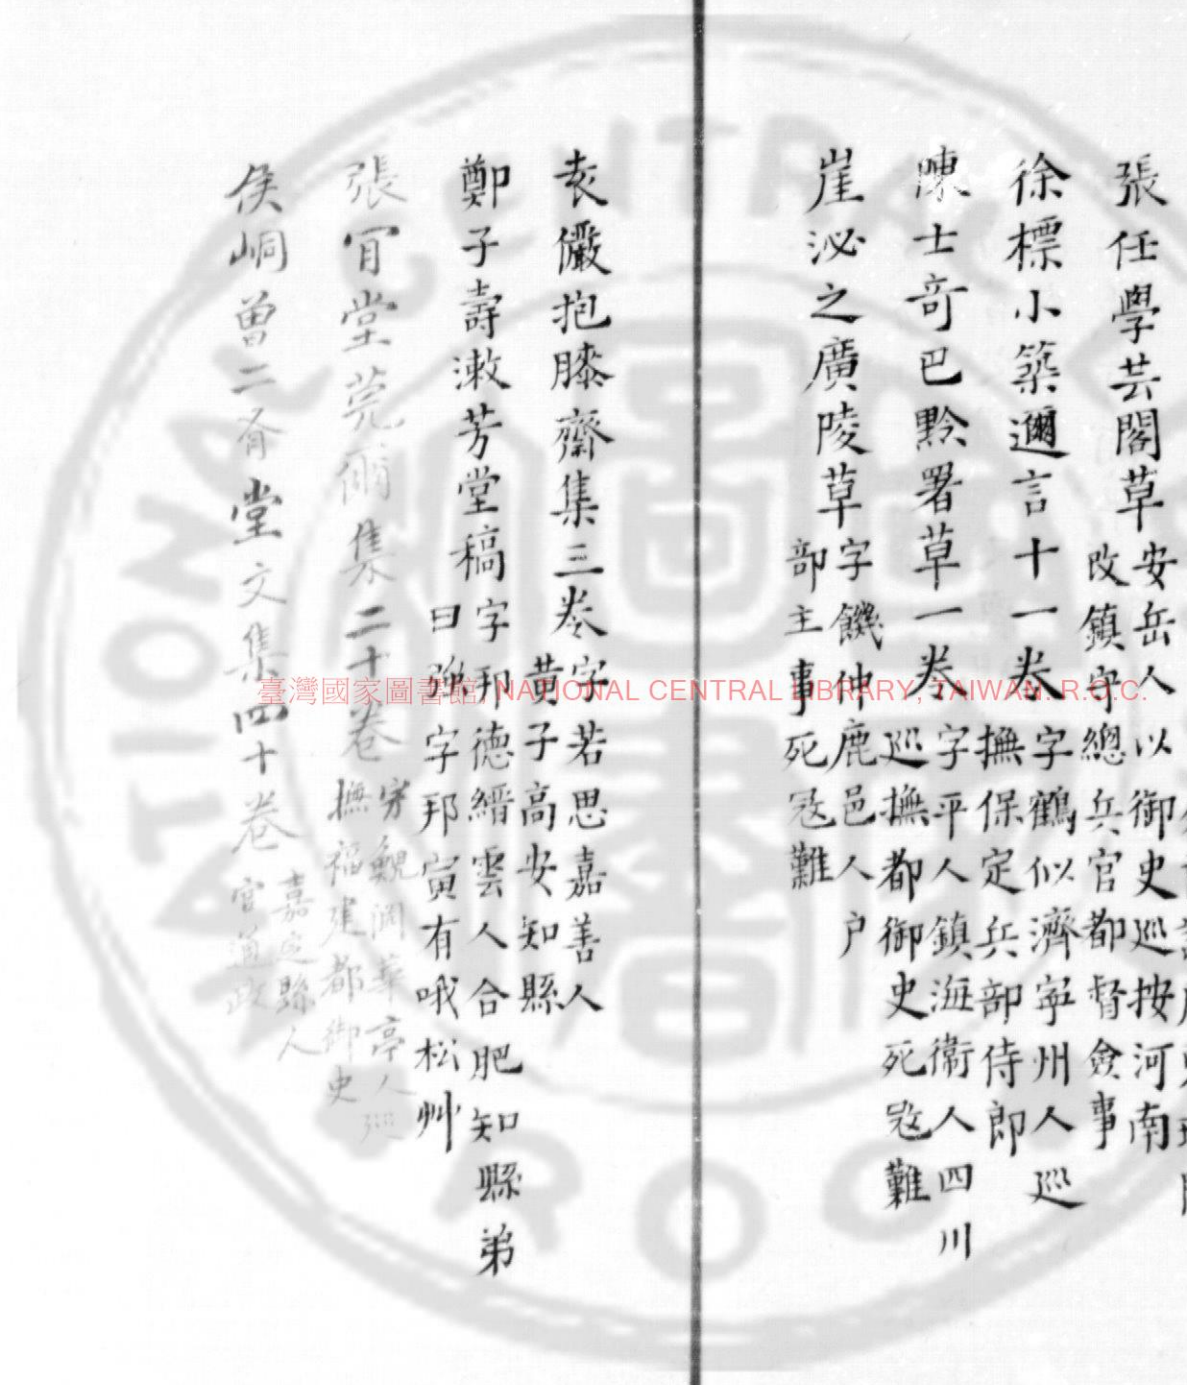 張任學芸閣草
安岳人以御史巡按河南
改鎮守總兵官都督僉事
徐標小築邇言十一卷
字鶴似濟寧州人巡
撫保定兵部侍郎
陳士奇巴黔署草一卷
字平人鎮海衛人四川
巡撫都御史死寇難
崖泌之廣陵草
字饑仲鹿邑人户
部主事死寇難
袁儼抱膝齋集三卷
字若思嘉善人
黄子高安知縣
鄭子壽漱芳堂稿
字邦德縉雲人合肥知縣弟
曰強字邦寅有哦松艸
張肎堂莞爾集二十卷
字鯢渊華亭人巡
撫福建都御史
侯峒曾二斉堂文集四十卷
嘉定縣人
官通政
臺灣國家圖書館, NATIONAL CENTRAL LIBRARY, TAIWAN. R.O.C.